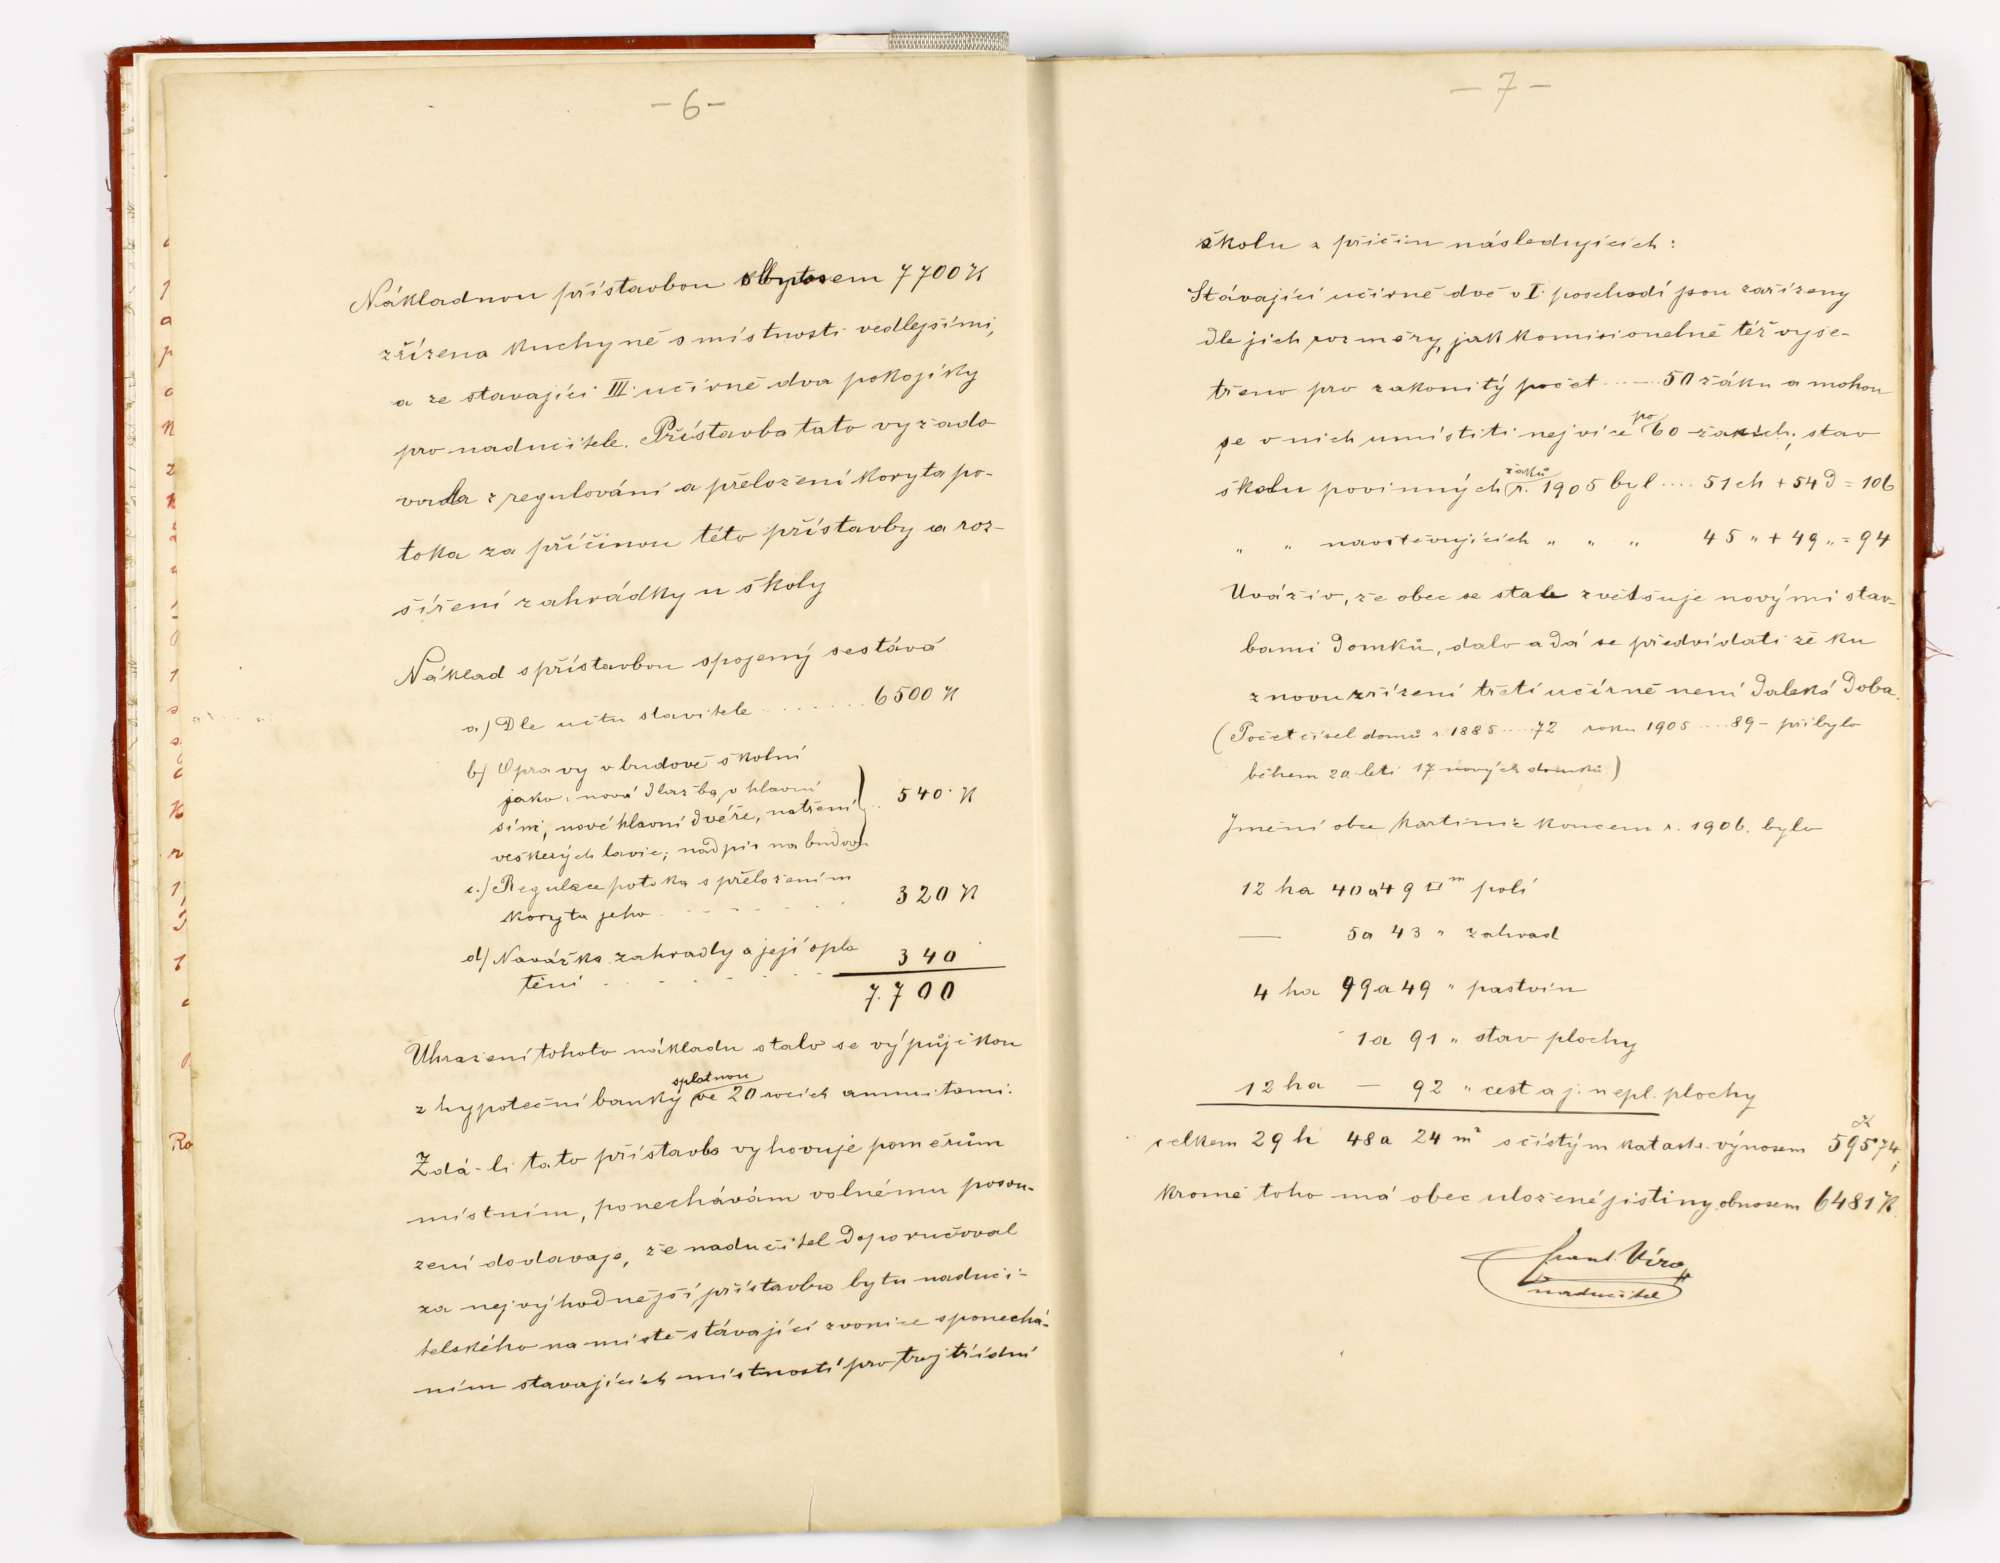 – 6 –
Nákladnou přístavbou obnosem 7700 K
zřízena kuchyně s místnosti vedlejšími,
a ze stavající III. učírně dva pokojíky
pro nadučitele. Přístavba tato vyžado
vala z regulování a přeložení koryta po-
toka za příčinou této přístavby a roz-
šíření zahrádky u školy
Náklad s přístavbou spojený sestává
a) Dle účtu stavitele ........ 6500 K
b) Opravy v budově školní
jako: nová dlažba v hlavní
síni, nové hlavní dvéře, natření
veškerých lavic; nadpis na budov. } .. 540 K
c.) Regulace potoka s přeložením
koryta jeho - - - - - - 320 K
d) Navážka zahrady a její oplo
tění - - - - - - 340
7.700
Uhražení tohoto nákladu stalo se výpůjčkou
z hypoteční banky splatnou ve 20 rocích annuitami.
Zdá-li tato přístavba vyhovuje poměrům
místním, ponechávám volnému posou-
zení dodavaje, že nadučitel doporučoval
za nejvýhodnější přístavbu bytu naduči-
telského na místě stávající zvonice s ponechá-
ním stavajících místností pro trojtřídní
– 7 –
školu z příčin následujících:
Stávající učírně dvě v I. poschodí jsou zařízeny
dle jich rozměry, jak komisionelně též vyše-
třeno pro zakonitý počet ...... 50 žáků a mohou
se v nich umístiti nejvíce po 60 žácích; stav
školu povinných žáků r. 1905 byl .... 51 ch + 54 d = 106
„ „ navštěvujících „ „ „ 45 „ + 49 „ = 94
Uváživ, že obec se stale zvětšuje novými stav-
bami domků, dalo a dá se předvídati že ku
znovuzřízení třetí učírně není daleká doba.
(Počet čísel domů r. 1885 ..... 72 roku 1905 ..... 89 – přibylo
během 20 letí 17 nových domků)
Jmění obce Martinic koncem r. 1906. bylo
12 ha 40 a 49 □m polí
— 5a 43 „ zahrad
4 ha 99 a 49 „ pastvin
1a 91 „ stav plochy
12 ha — 92 „ cest a j. nepl. plochy
celkem 29 h 48 a 24 m² s čistým katastr. výnosem 595 K 74,
kromě toho má obec uložené jistiny obnosem 6481 K.
Frant. Víra
nadučitel